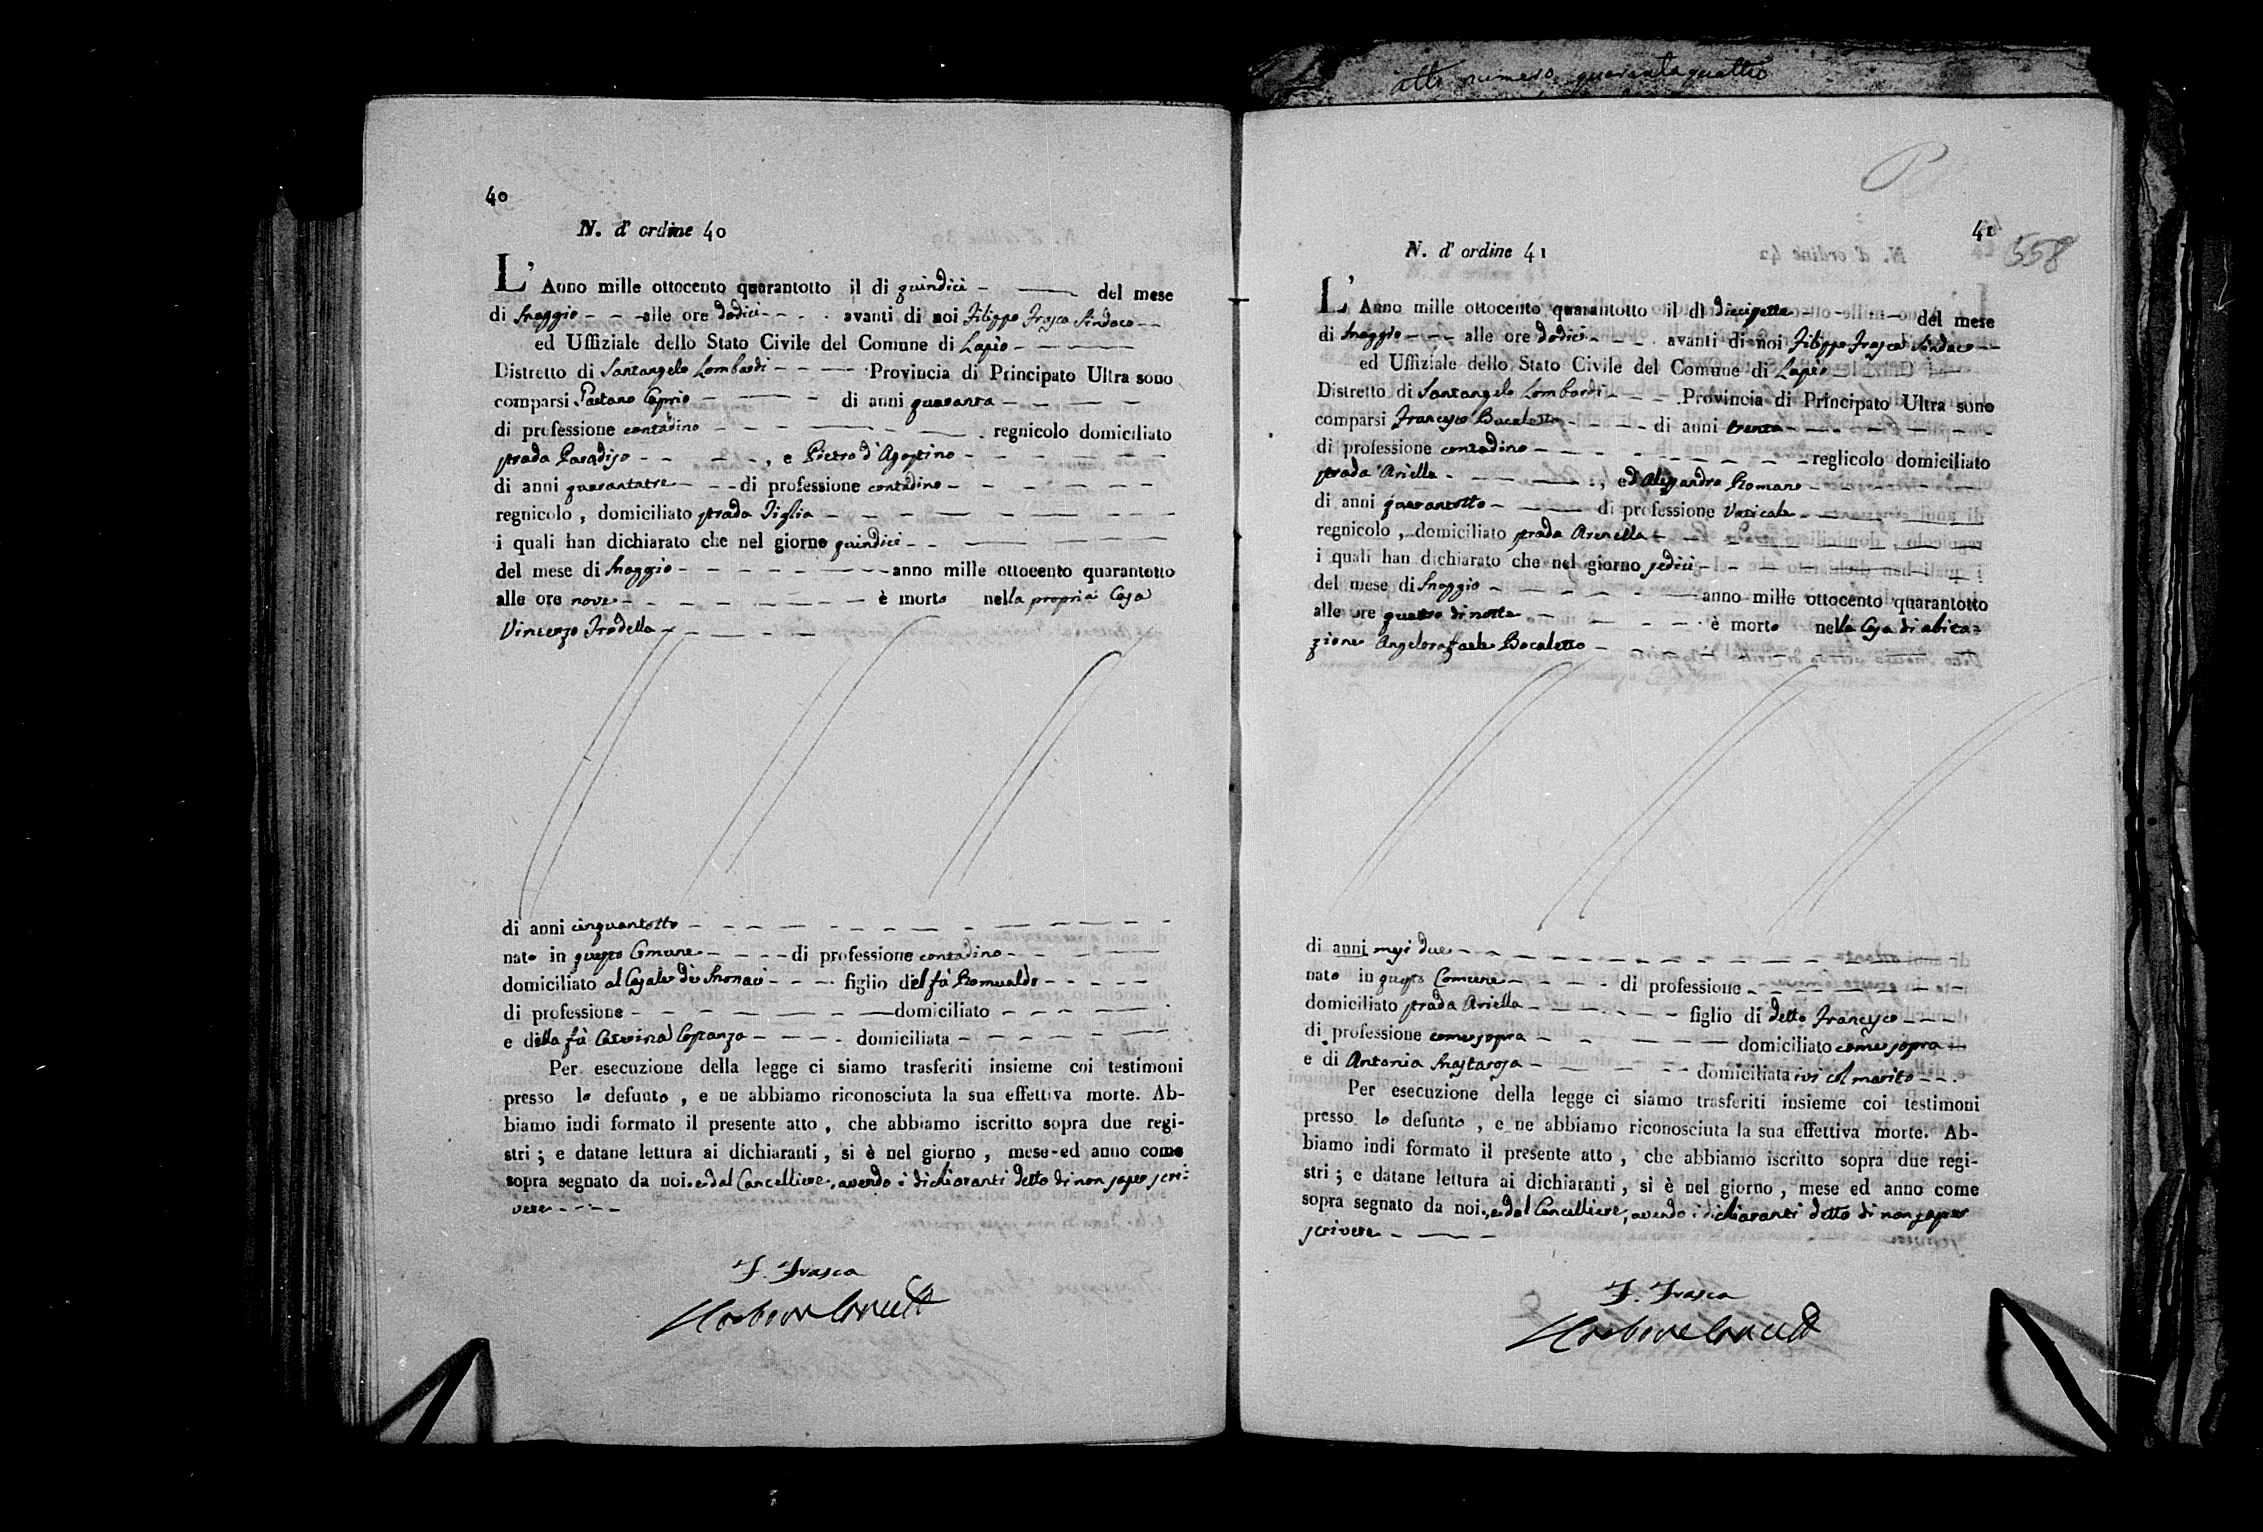 atto numero quarantaquattro
40
N. d' ordine 40
L' Anno mille ottocento quarantotto il di quindici del mese
di Maggio alle ore dodici avanti di noi Filippo Frasca Sindaco
ed Uffiziale dello Stato Civile del Comune di Lapio
Distretto di Santangelo Lombardi Provincia di Principato Ultra sono
comparsi Gaetano Caprio di anni quaranta
di professione contadino regnicolo domiciliato
strada Paradiso , e Pietro d'Agostino
di anni quarantatre di professione contadino
regnicolo , domiciliato strada Tiglia
i quali han dichiarato che nel giorno quindici
del mese di Maggio anno mille ottocento quarantotto
alle ore nove è morto nella propria Casa
Vincenzo Trodella
di anni cinquantotto
nato in questo Comune di professione contadino
domiciliato al Casale dei Monaci figlio del fù Romualdo
di professione domiciliato
e della fù Costanzo domiciliata
Per esecuzione della legge ci siamo trasferiti insieme coi testimoni
presso lo defunto , e ne abbiamo riconosciuta la sua effettiva morte. Ab-
biamo indi formato il presente atto , che abbiamo iscritto sopra due regi-
stri ; e datane lettura ai dichiaranti , si è nel giorno , mese ed anno come
sopra segnato da noi e dal Cancelliere, avendo i dichiaranti detto di non saper scri-
vere
F. Frasca
41
558
N. d' ordine 41
L' Anno mille ottocento quarantotto il dì diecisette del mese
di Maggio alle ore dodici avanti di noi Filippo Frasca Sindaco
ed Uffiziale dello Stato Civile del Comune di Lapio
Distretto di Santangelo Lombardi Provincia di Principato Ultra sono
comparsi Francesco Bocaletto di anni trenta
di professione contadino reglicolo domiciliato
strada Ariella , ed Alessandro Romano
di anni quarantotto di professione Vaticale
regnicolo , domiciliato strada Arenella
i quali han dichiarato che nel giorno sedici
del mese di Maggio anno mille ottocento quarantotto
alle ore quattro di notte è morto nella Casa di abita-
zione Angelorafaele Bocaletto
di anni mesi due
nato in questo Comune di professione
domiciliato strada Ariella figlio di detto Francesco
di professione come sopra domiciliato come sopra
e di Antonia Mastarosa domiciliata ivi col marito
Per esecuzione della legge ci siamo trasferiti insieme coi testimoni
presso lo defunto , e ne abbiamo riconosciuta la sua effettiva morte. Ab-
biamo indi formato il presente atto , che abbiamo iscritto sopra due regi-
stri ; e datane lettura ai dichiaranti , si è nel giorno , mese ed anno come
sopra segnato da noi, e dal Cancelliere, avendo i dichiaranti detto di non saper
scrivere
F. Frasca